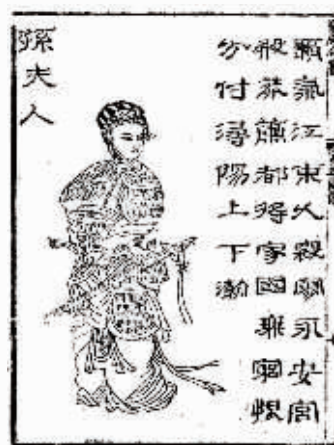 霸氣江東久寂寥永安宮
殿莽蕭都將家國無窮恨
分付潯陽上下潮
孫夫人